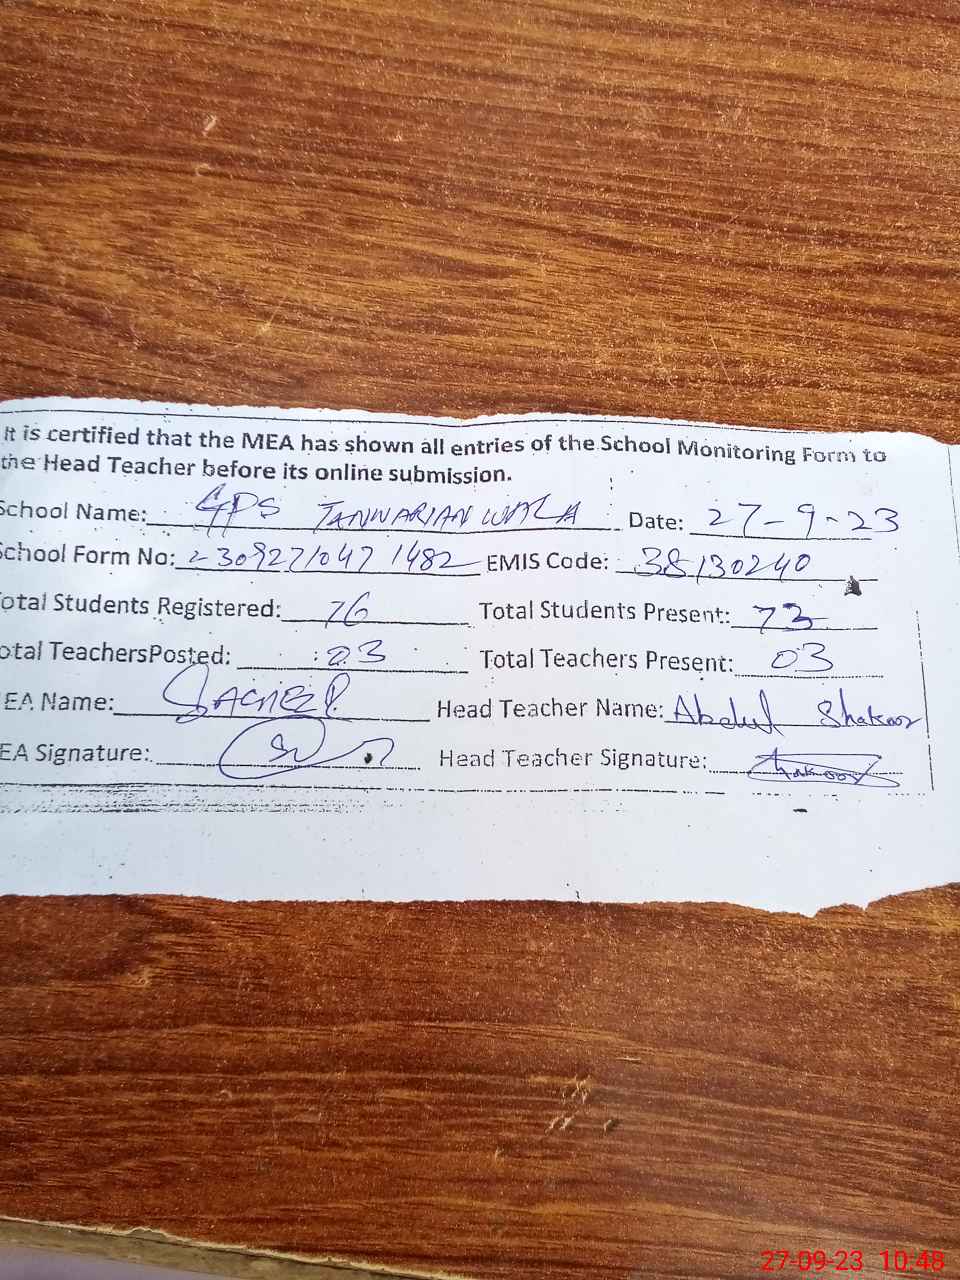 It is certified that the MEA has shown all entries of the School Monitoring Form to
the Head Teacher before its online submission.
School Name: GPS TANWARIAN WALA Date: 27-9-23
School Form No: 23092710471482 EMIS Code: 38130240
otal Students Registered: 76 Total Students Present: 73
otal TeachersPosted: 03 Total Teachers Present: 03
EA Name: Head Teacher Name: Abdul Shakoor
EA Signature: Head Teacher Signature: Shakoor
27-09-23 10:48